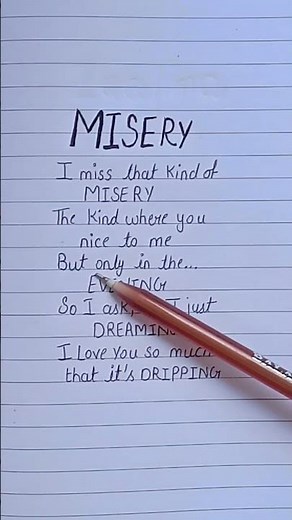 MISERY
I miss that kind of
MISERY
The kind where you
nice to me
But only in the...
EVENING
So I ask, I just
DREAMING
I Love You so much
that it's DRIPPING